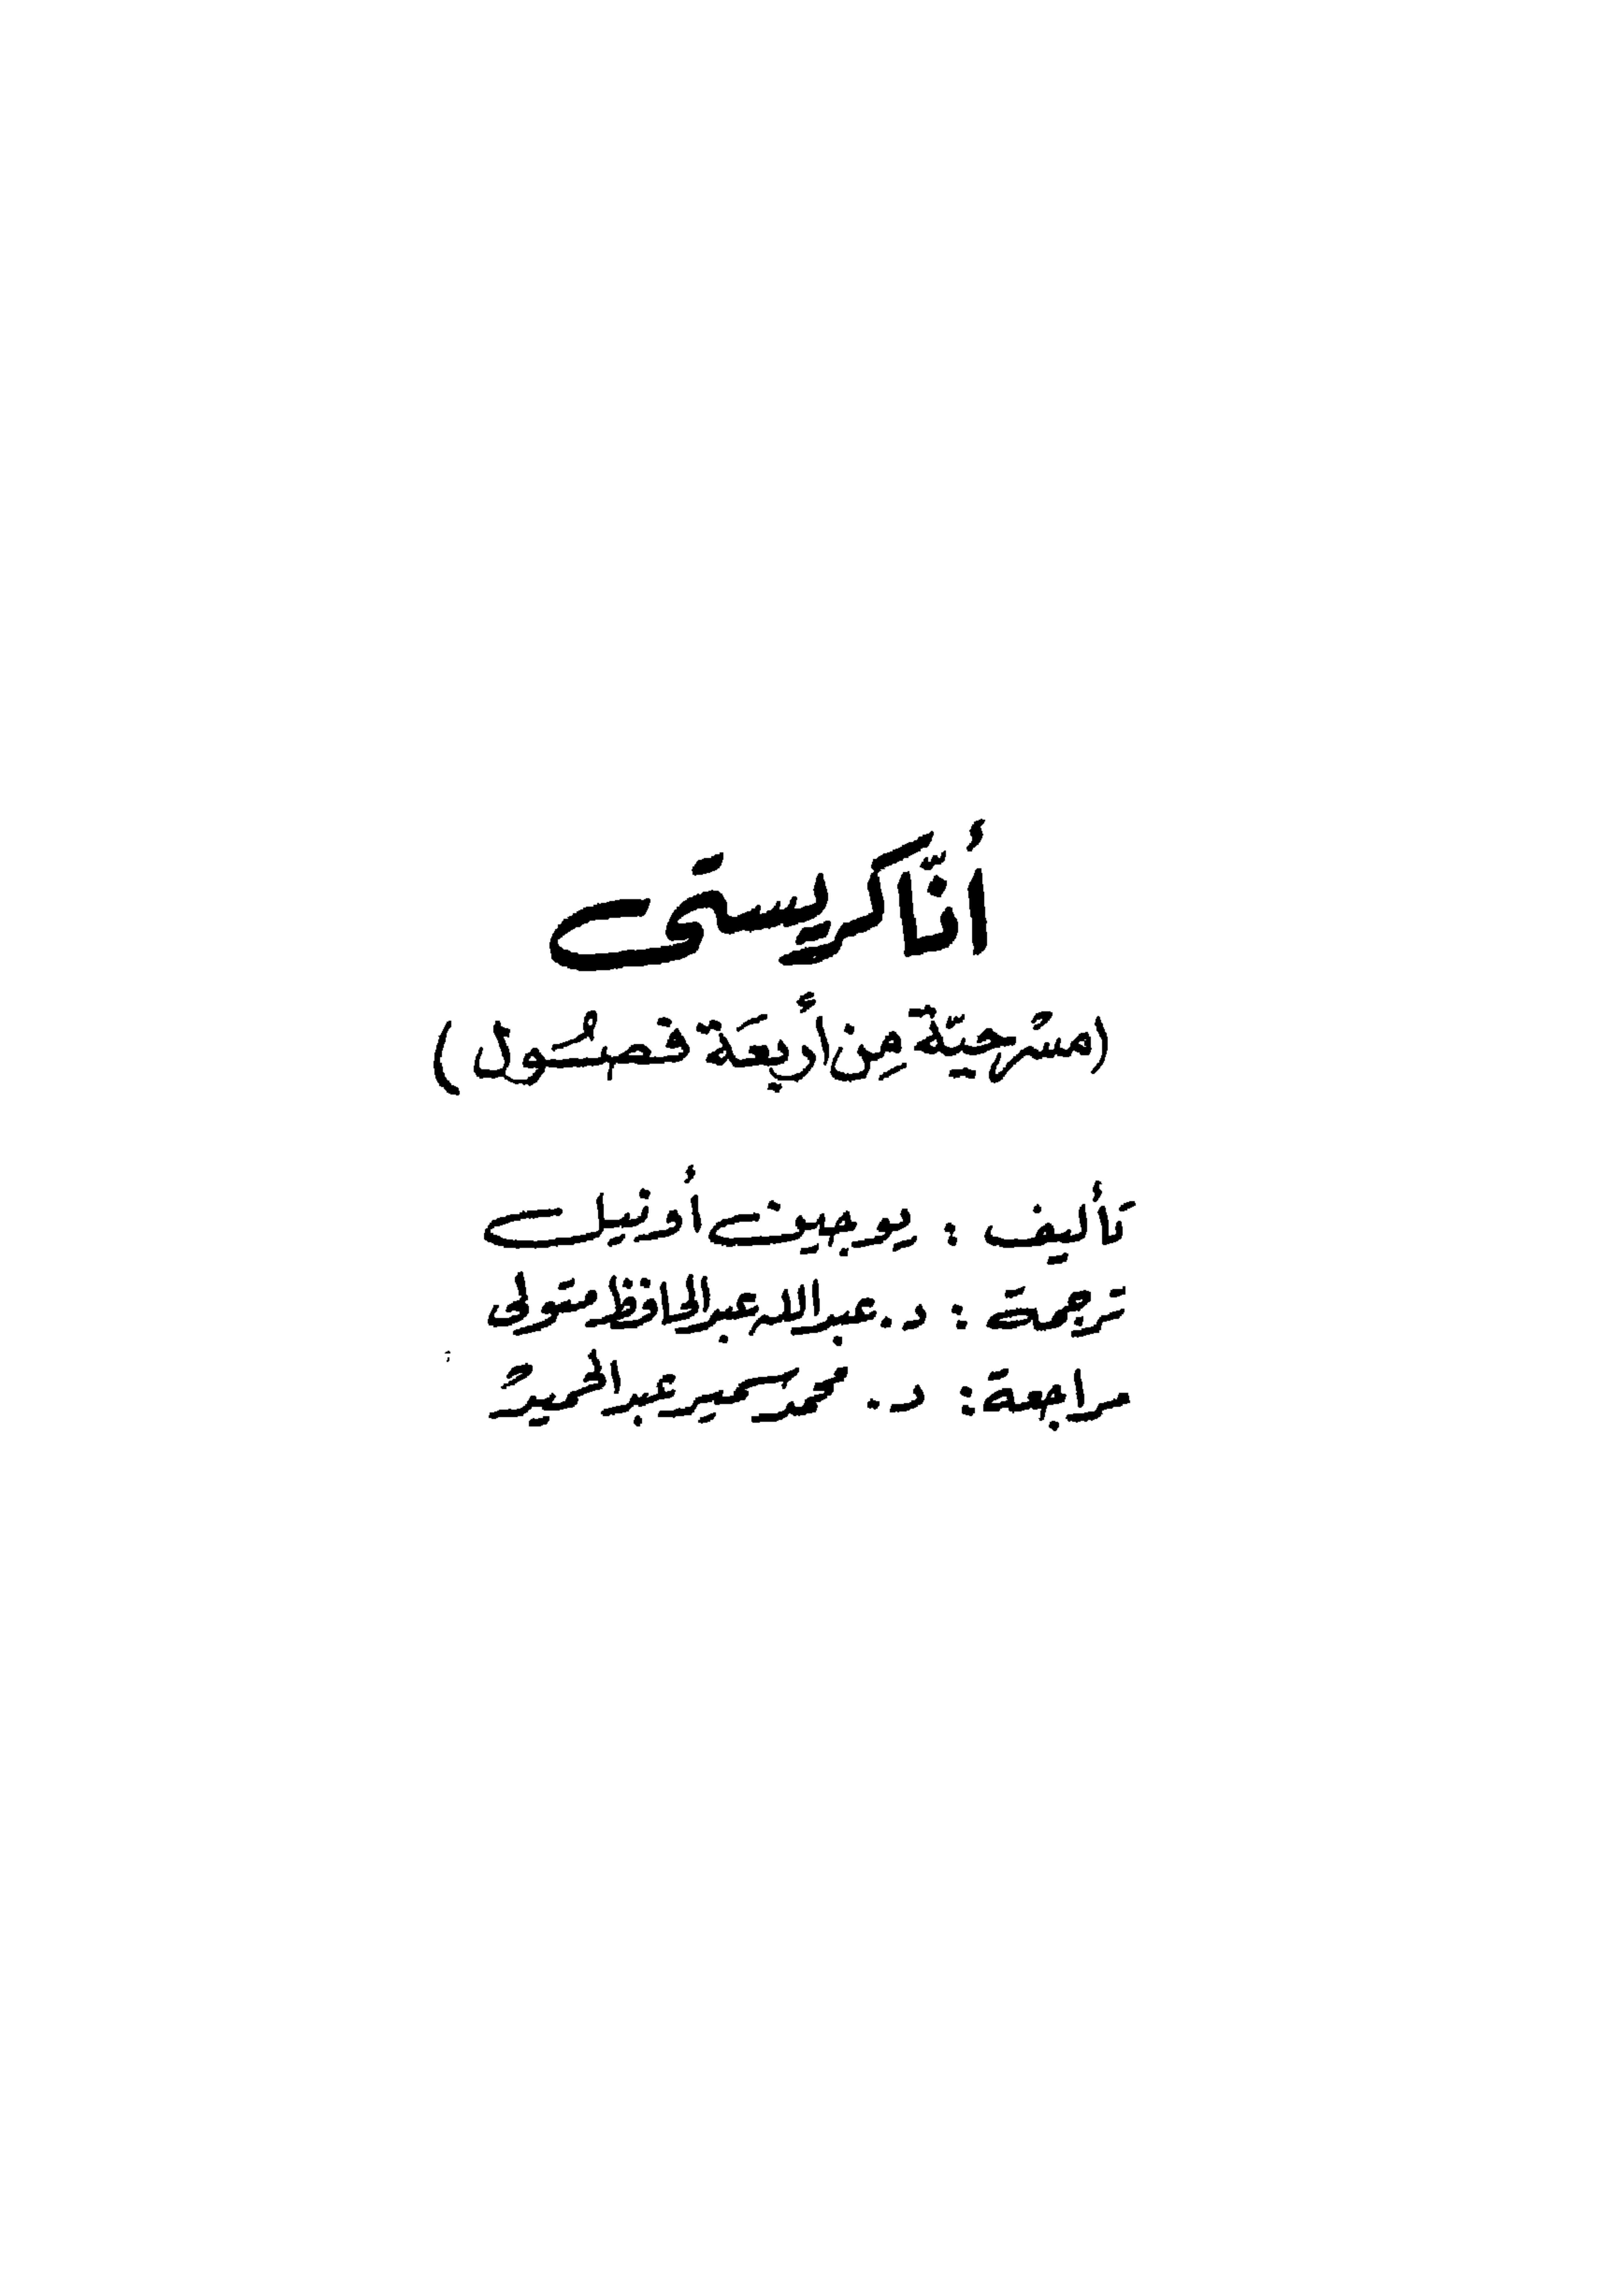 أُنَّا كريستى
(مسْرحيّة مِن أَربعَة فصُول)
تأليف : يوجين أونيل
ترجمة : د. عبد الله عبد الحافظ متولى
مراجعة : د. محمد سمير عبد الحميد